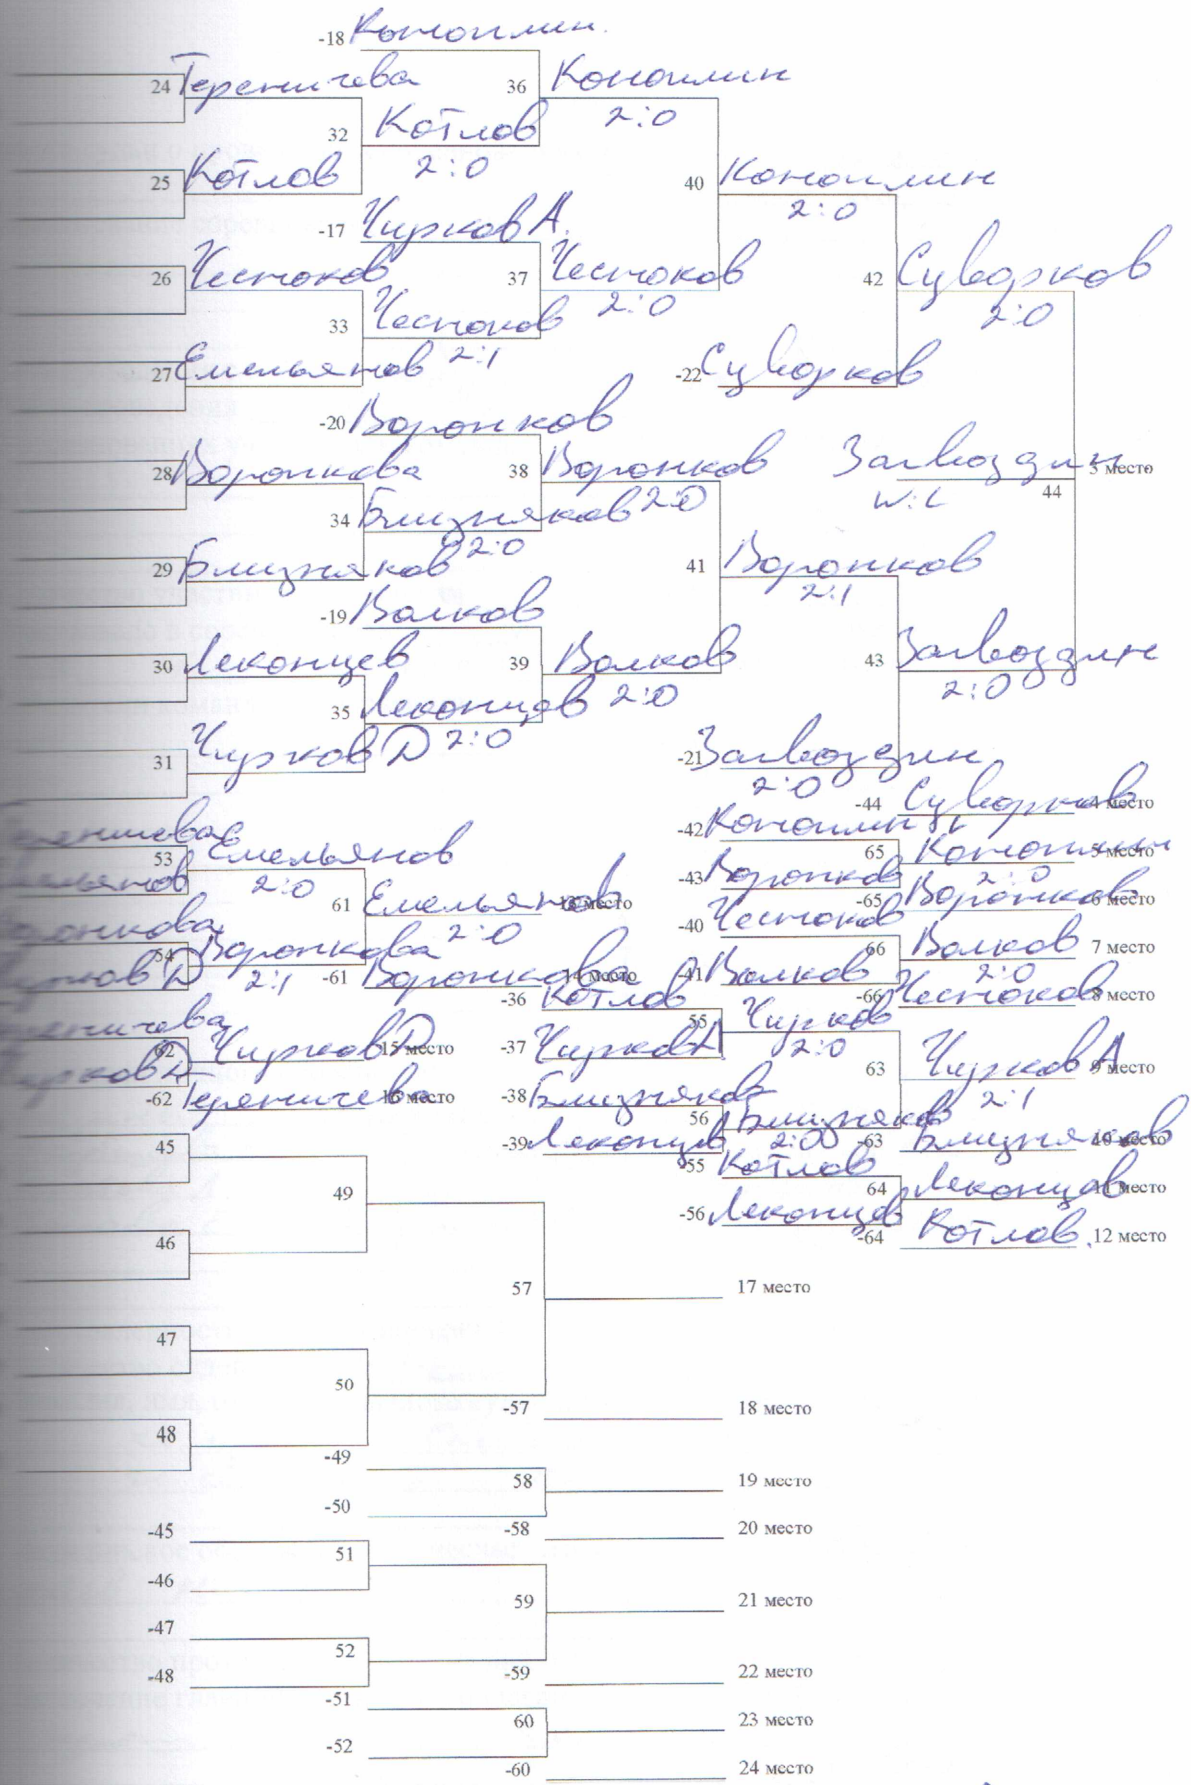 -18 Коноплин.
24 Тереничева 36 Коноплин
2:0
32 Котлов
2:0
25 Котлов 40 Коноплин
2:0
-17 Чирков А.
26 Чесноков 37 Чесноков 42 Суворков
2:0 2:0
33 Чесноков
2:1
27 Емельянов -22 Суворков
-20 Воронков
28 Воронкова 38 Воронков Загвоздин 3 место
2:0 W:L 44
34 Близняков
2:0
29 Близняков 41 Воронков
2:1
-19 Волков
30 Леконцев 39 Волков 43 Загвоздин
2:0 2:0
35 Леконцев
2:0
31 Чирков Д -21 Загвоздин
2:0
-44 Суворков 4 место
-42 Коноплин
53 Емельянов 65 Коноплин 5 место
2:0 2:0
-43 Воронков
61 Емельянов 13 место -65 Воронков 6 место
2:0
-40 Чесноков
54 Воронкова 66 Волков 7 место
2:1 2:0
-61 Воронкова 14 место -41 Волков
-66 Чесноков 8 место
-36 Котлов
55 Чирков
2:0
62 Чирков Д 15 место -37 Чирков А 63 Чирков А 9 место
2:1
-62 Тереничева 16 место -38 Близняков
56 Близняков
2:0
-63 Близняков 10 место
45 -39 Леконцев
-55 Котлов
49 64 Леконцев 11 место
-56 Леконцев
46 -64 Котлов. 12 место
57 17 место
47
50
-57 18 место
48
-49
58 19 место
-50
-58 20 место
-45
51
-46
59 21 место
-47
52
-48 -59 22 место
-51
60 23 место
-52
-60 24 место